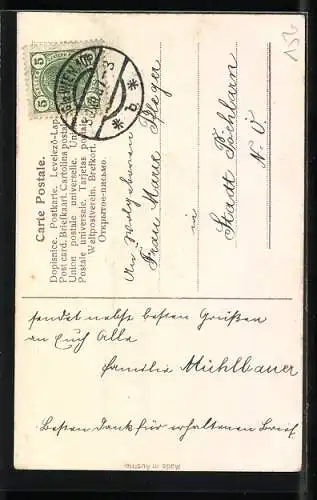 Carte Postale.
Dopisnice. Postkarte. Levelező-Lap.
Post card. Briefkaart. Cartolina postale.
Union postale universelle.
Postale universale. Tarjetas
Weltpostverein. Brefkort.
Открытое-письмо.
5 5
GMUNDEN
* b *
156
An Wolgeboren
Frau Marie Pfleger
in
Stadt Pöchlarn
N. Ö
sendet nebst besten Grüßen
an Euch Alle
Familie Mühlbauer
Besten Dank für erhaltenen Brief
Made in Austria